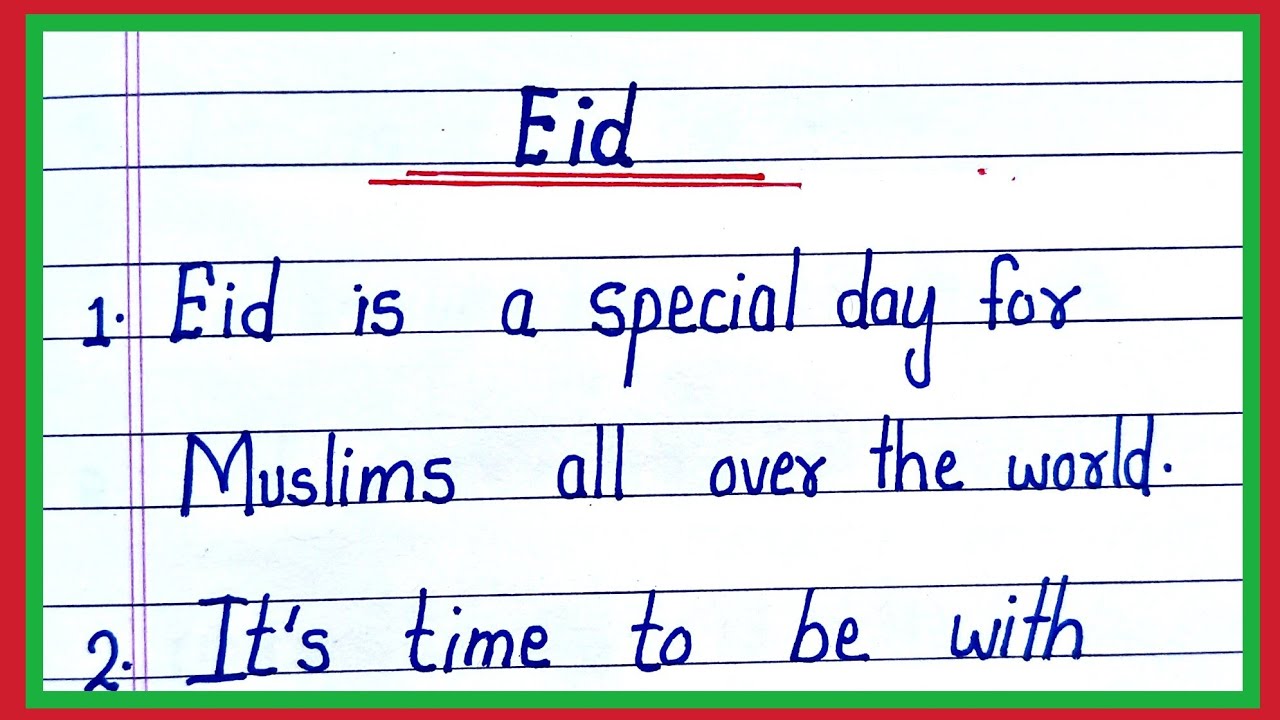 Eid
1. Eid is a special day for
Muslims all over the world.
2. It's time to be with